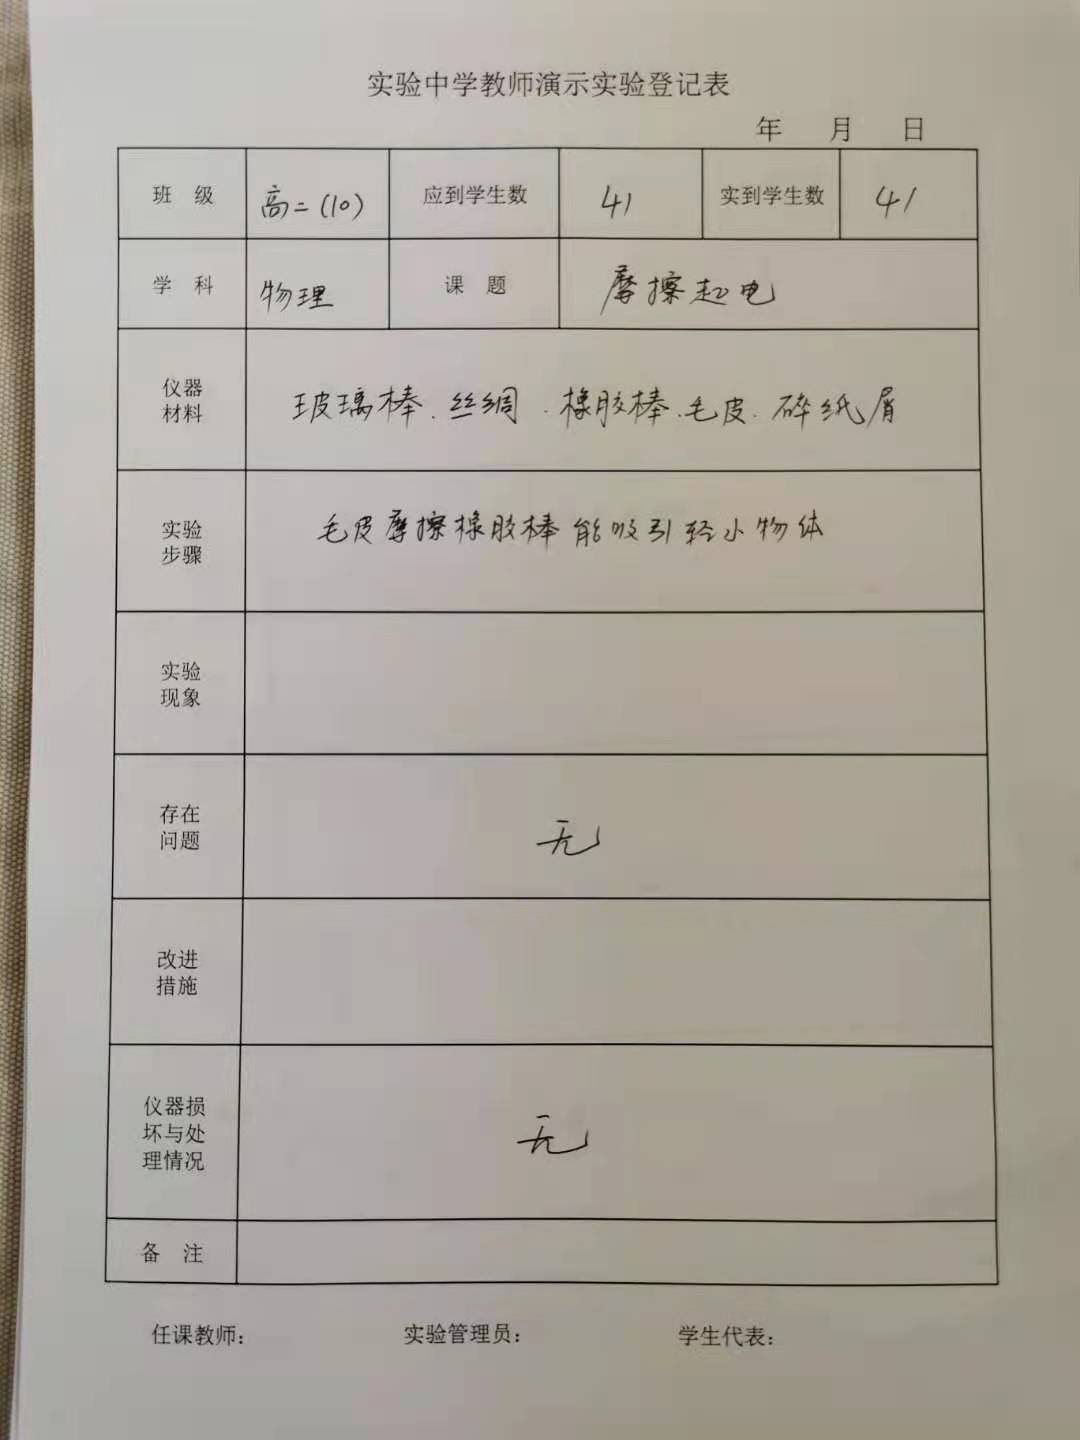 实验中学教师演示实验登记表
年 月 日
班 级 高二(10) 应到学生数 41 实到学生数 41
学 科 物理 课 题 摩擦起电
仪器
材料
玻璃棒、丝绸、橡胶棒、毛皮、碎纸屑
实验
步骤
毛皮摩擦橡胶棒能吸引轻小物体
实验
现象
存在
问题
无
改进
措施
仪器损
坏与处
理情况
无
备 注
任课教师: 实验管理员: 学生代表: